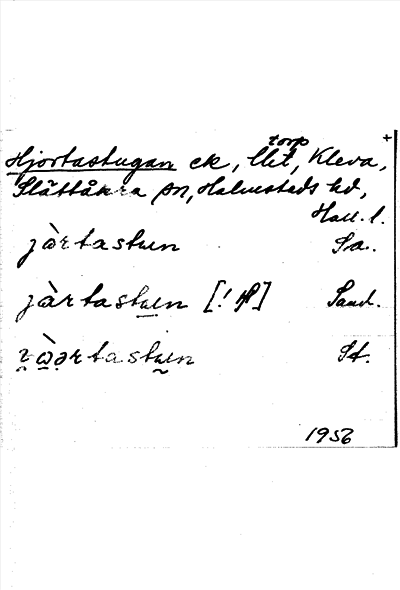 torp +
Hjortastugan ek, lht, Kleva,
Slättåkra sn, Halmstads hd,
Hall. l.
jàrtastuen Sa.
jàrtastuen [! ] Sand.
St.
1956